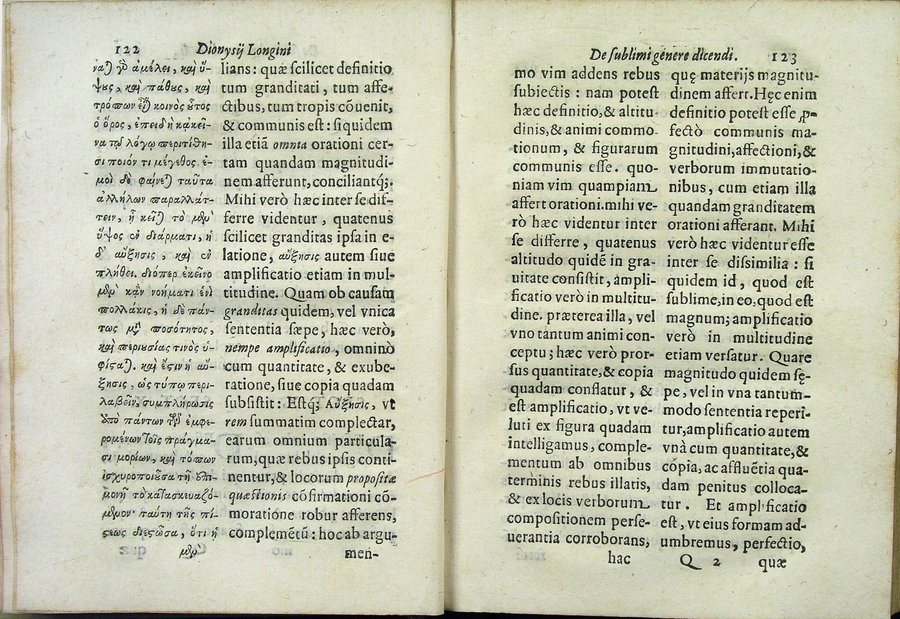 122
Dionysij Longini
ναῖ γὰρ ἀμέλει, καὶ ὕ-
ψους, καὶ πάθους, καὶ
τρόπων εἶναι κοινὸς οὗτος
ὁ ὅρος, ἐπειδὴ κἀκεῖ-
να τῷ λόγῳ περιτίθη-
σι ποιόν τι μέγεθος. ἐ-
μοὶ δὲ φαίνεται ταῦτα
ἀλλήλων παραλλάτ-
τειν, ᾗ κεῖται τὸ μὲν
ὕψος ἐν διάρματι, ἡ
δ' αὔξησις, καὶ ἐν
πλήθει. διόπερ ἐκεῖνο
μὲν κἂν νοήματι ἑνὶ
πολλάκις, ἡ δὲ πάν-
τως μετὰ ποσότητος,
καὶ περιουσίας τινὸς ὑ-
φίσταται. καὶ ἔστιν ἡ αὔ-
ξησις, ὡς τύπῳ περι-
λαβεῖν, συμπλήρωσις
ἀπὸ πάντων τῶν ἐμφε-
ρομένων τοῖς πράγμα-
σι μορίων, καὶ τόπων
ἰσχυροποιοῦσα τῇ ἐπι-
μονῇ τὸ κατασκευαζό-
μενον· ταύτῃ τῆς πί-
στεως διεστῶσα, ὅτι ἡ
μὲν
lians: quæ scilicet definitio
tum granditati, tum affe-
ctibus, tum tropis cōuenit,
& communis est: siquidem
illa etiā omnia orationi cer-
tam quandam magnitudi-
nem afferunt, conciliantq́;.
Mihi verò hæc inter se dif-
ferre videntur, quatenus
scilicet granditas ipsa in e-
latione, αὔξησις autem siue
amplificatio etiam in mul-
titudine. Quam ob causam
granditas quidem, vel vnica
sententia sæpe, hæc verò,
nempe amplificatio, omninò
cum quantitate, & exube-
ratione, siue copia quadam
subsistit: Estq́; Αὔξησις, vt
rem summatim complectar,
earum omnium particula-
rum, quæ rebus ipsis conti-
nentur, & locorum propositæ
quæstionis cōfirmationi cō-
moratione robur afferens,
complemētū: hoc ab argu-
men-
De sublimi genere dicendi.
123
mo vim addens rebus
subiectis: nam potest
hæc definitio, & altitu-
dinis, & animi commo-
tionum, & figurarum
communis esse. quo-
niam vim quampiam
affert orationi. mihi ve-
rò hæc videntur inter
se differre, quatenus
altitudo quidē in gra-
uitate consistit, ampli-
ficatio verò in multitu-
dine. præterea illa, vel
vno tantum animi con-
ceptu; hæc verò pror-
sus quantitate, & copia
quadam conflatur, &
est amplificatio, vt ve-
luti ex figura quadam
intelligamus, comple-
mentum ab omnibus
terminis rebus illatis,
& ex locis verborum
compositionem perse-
uerantia corroborans,
hac
quę materijs magnitu-
dinem affert. Hęc enim
definitio potest esse ꝓ-
fectò communis ma-
gnitudini, affectioni, &
verborum immutatio-
nibus, cum etiam illa
quandam granditatem
orationi afferant. Mihi
verò hæc videntur esse
inter se dissimilia: si
quidem id, quod est
sublime, in eo, quod est
magnum; amplificatio
verò in multitudine
etiam versatur. Quare
magnitudo quidem sę-
pe, vel in vna tantum-
modo sententia reperi-
tur, amplificatio autem
vnà cum quantitate, &
cópia, ac affluētia qua-
dam penitus colloca-
tur. Et amplificatio
est, vt eius formam ad-
umbremus, perfectio,
Q 2
quæ